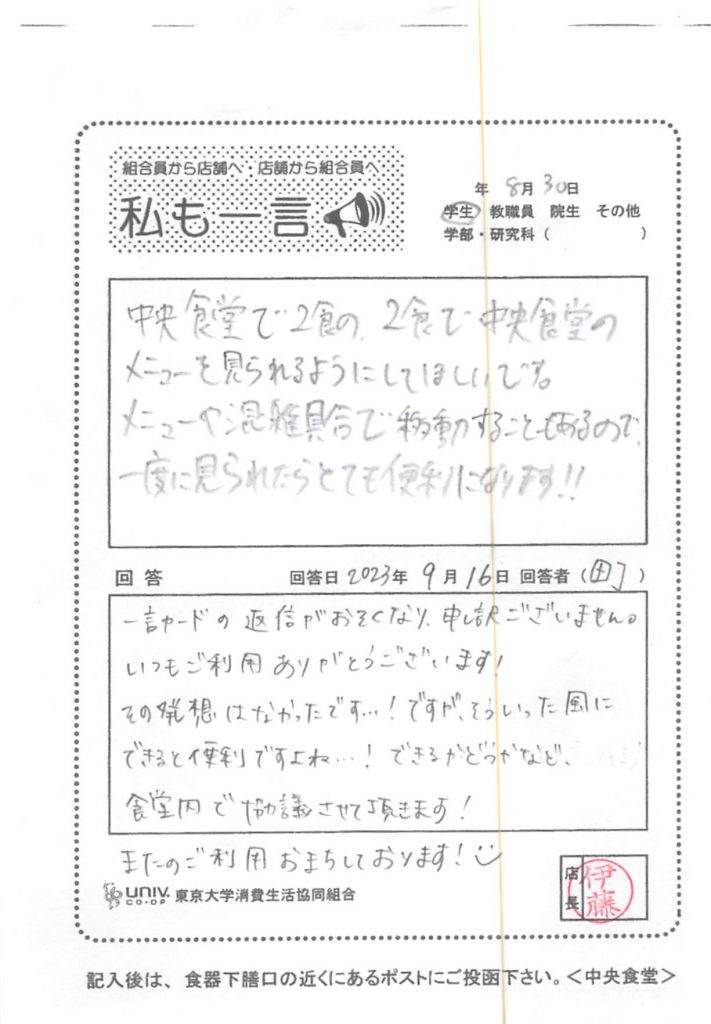 組合員から店舗へ・店舗から組合員へ
私も一言
年 8月30日
学生 教職員 院生 その他
学部・研究科（ ）
中央食堂で2食の、2食で中央食堂の
メニューを見られるようにしてほしいです。
メニューや混雑具合で移動することもあるので、
一度に見られたらとても便利になります!!
回答 回答日 2023年 9月16日 回答者（田丁）
一言カードの返信がおそくなり、申し訳ございません。
いつもご利用ありがとうございます!
その発想はなかったです…! ですが、そういった風に
できると便利ですよね…! できるかどうかなど、
食堂内で協議させて頂きます!
またのご利用おまちしております!
UNIV. CO-OP 東京大学消費生活協同組合
店長 伊藤
記入後は、食器下膳口の近くにあるポストにご投函下さい。＜中央食堂＞